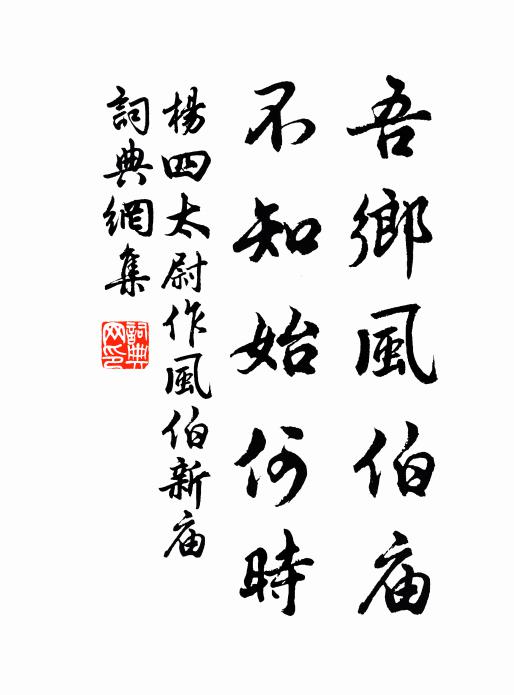 吾鄉風伯庙
不知始何時
楊四太尉作風伯新庙
詞典網集
詞典
网印